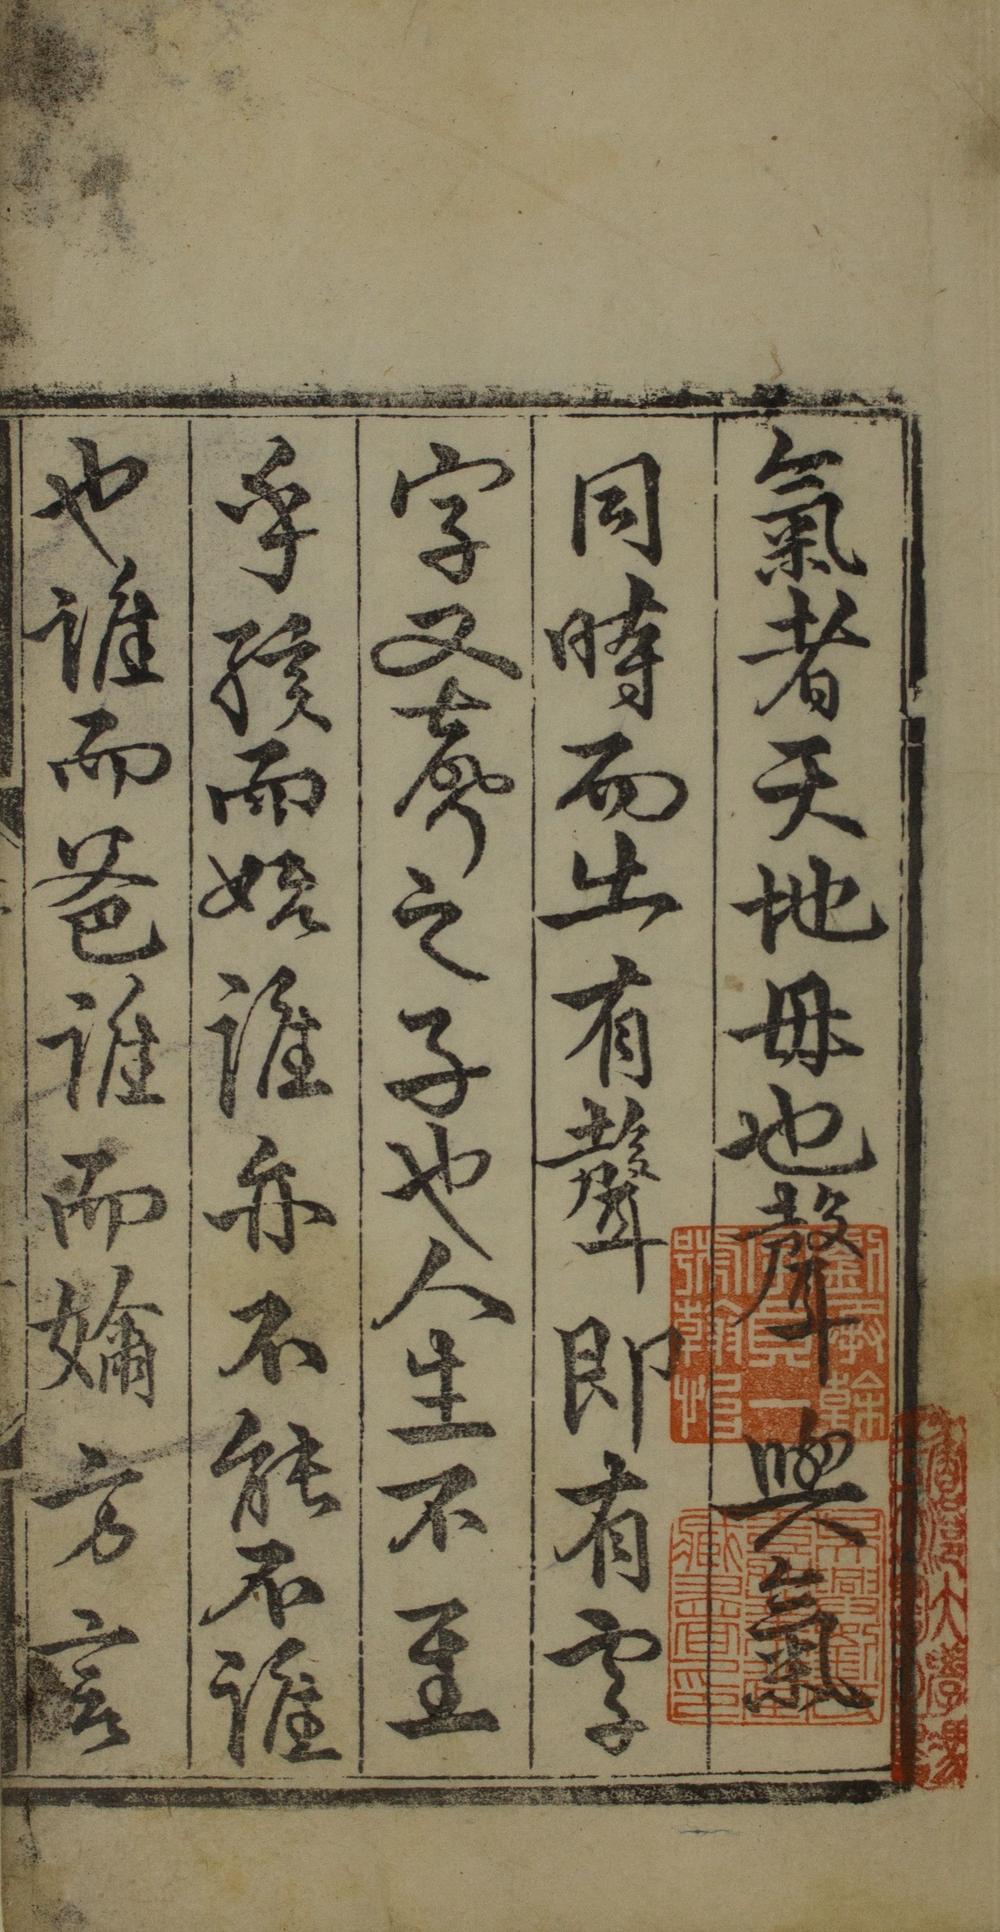 氣者天地母也聲與氣
同時而出有聲即有字
字又聲之子也人生不
乎孩而始誰亦不能不誰
也誰而爸誰而嬭方言